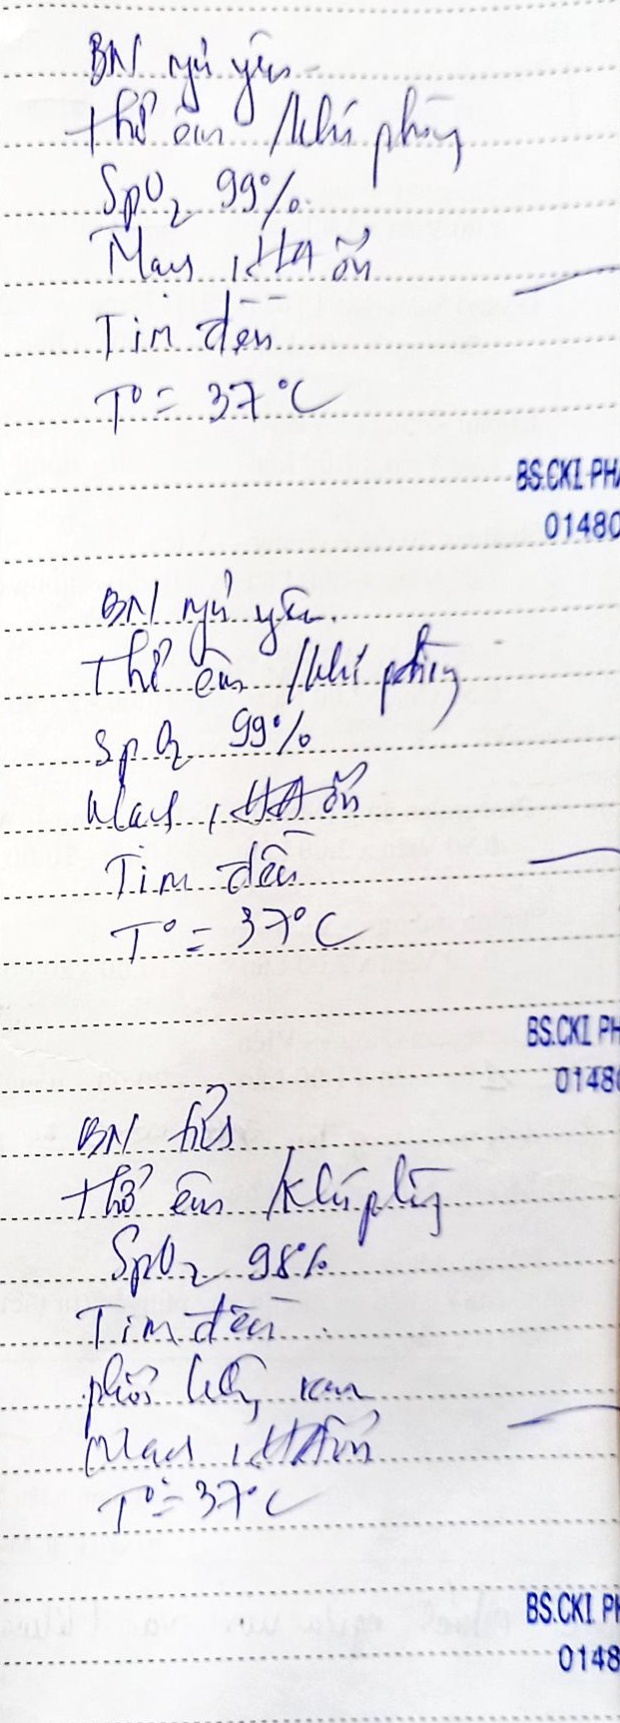 BN ngủ yên
thở êm /khí phòng
SpO2 99%
Mạch, HA ổn
Tim đều
T° = 37°C
BS.CKI PH
0148
BN ngủ yên.
thở êm /khí phòng
SpO2 99%
Mạch, HA ổn
Tim đều
T° = 37°C
BS.CKI PH
0148
BN tỉnh
thở êm /khí phòng
SpO2 98%
Tim đều
phổi không ran
Mạch, HA ổn
T° = 37°C
BS.CKI PH
0148